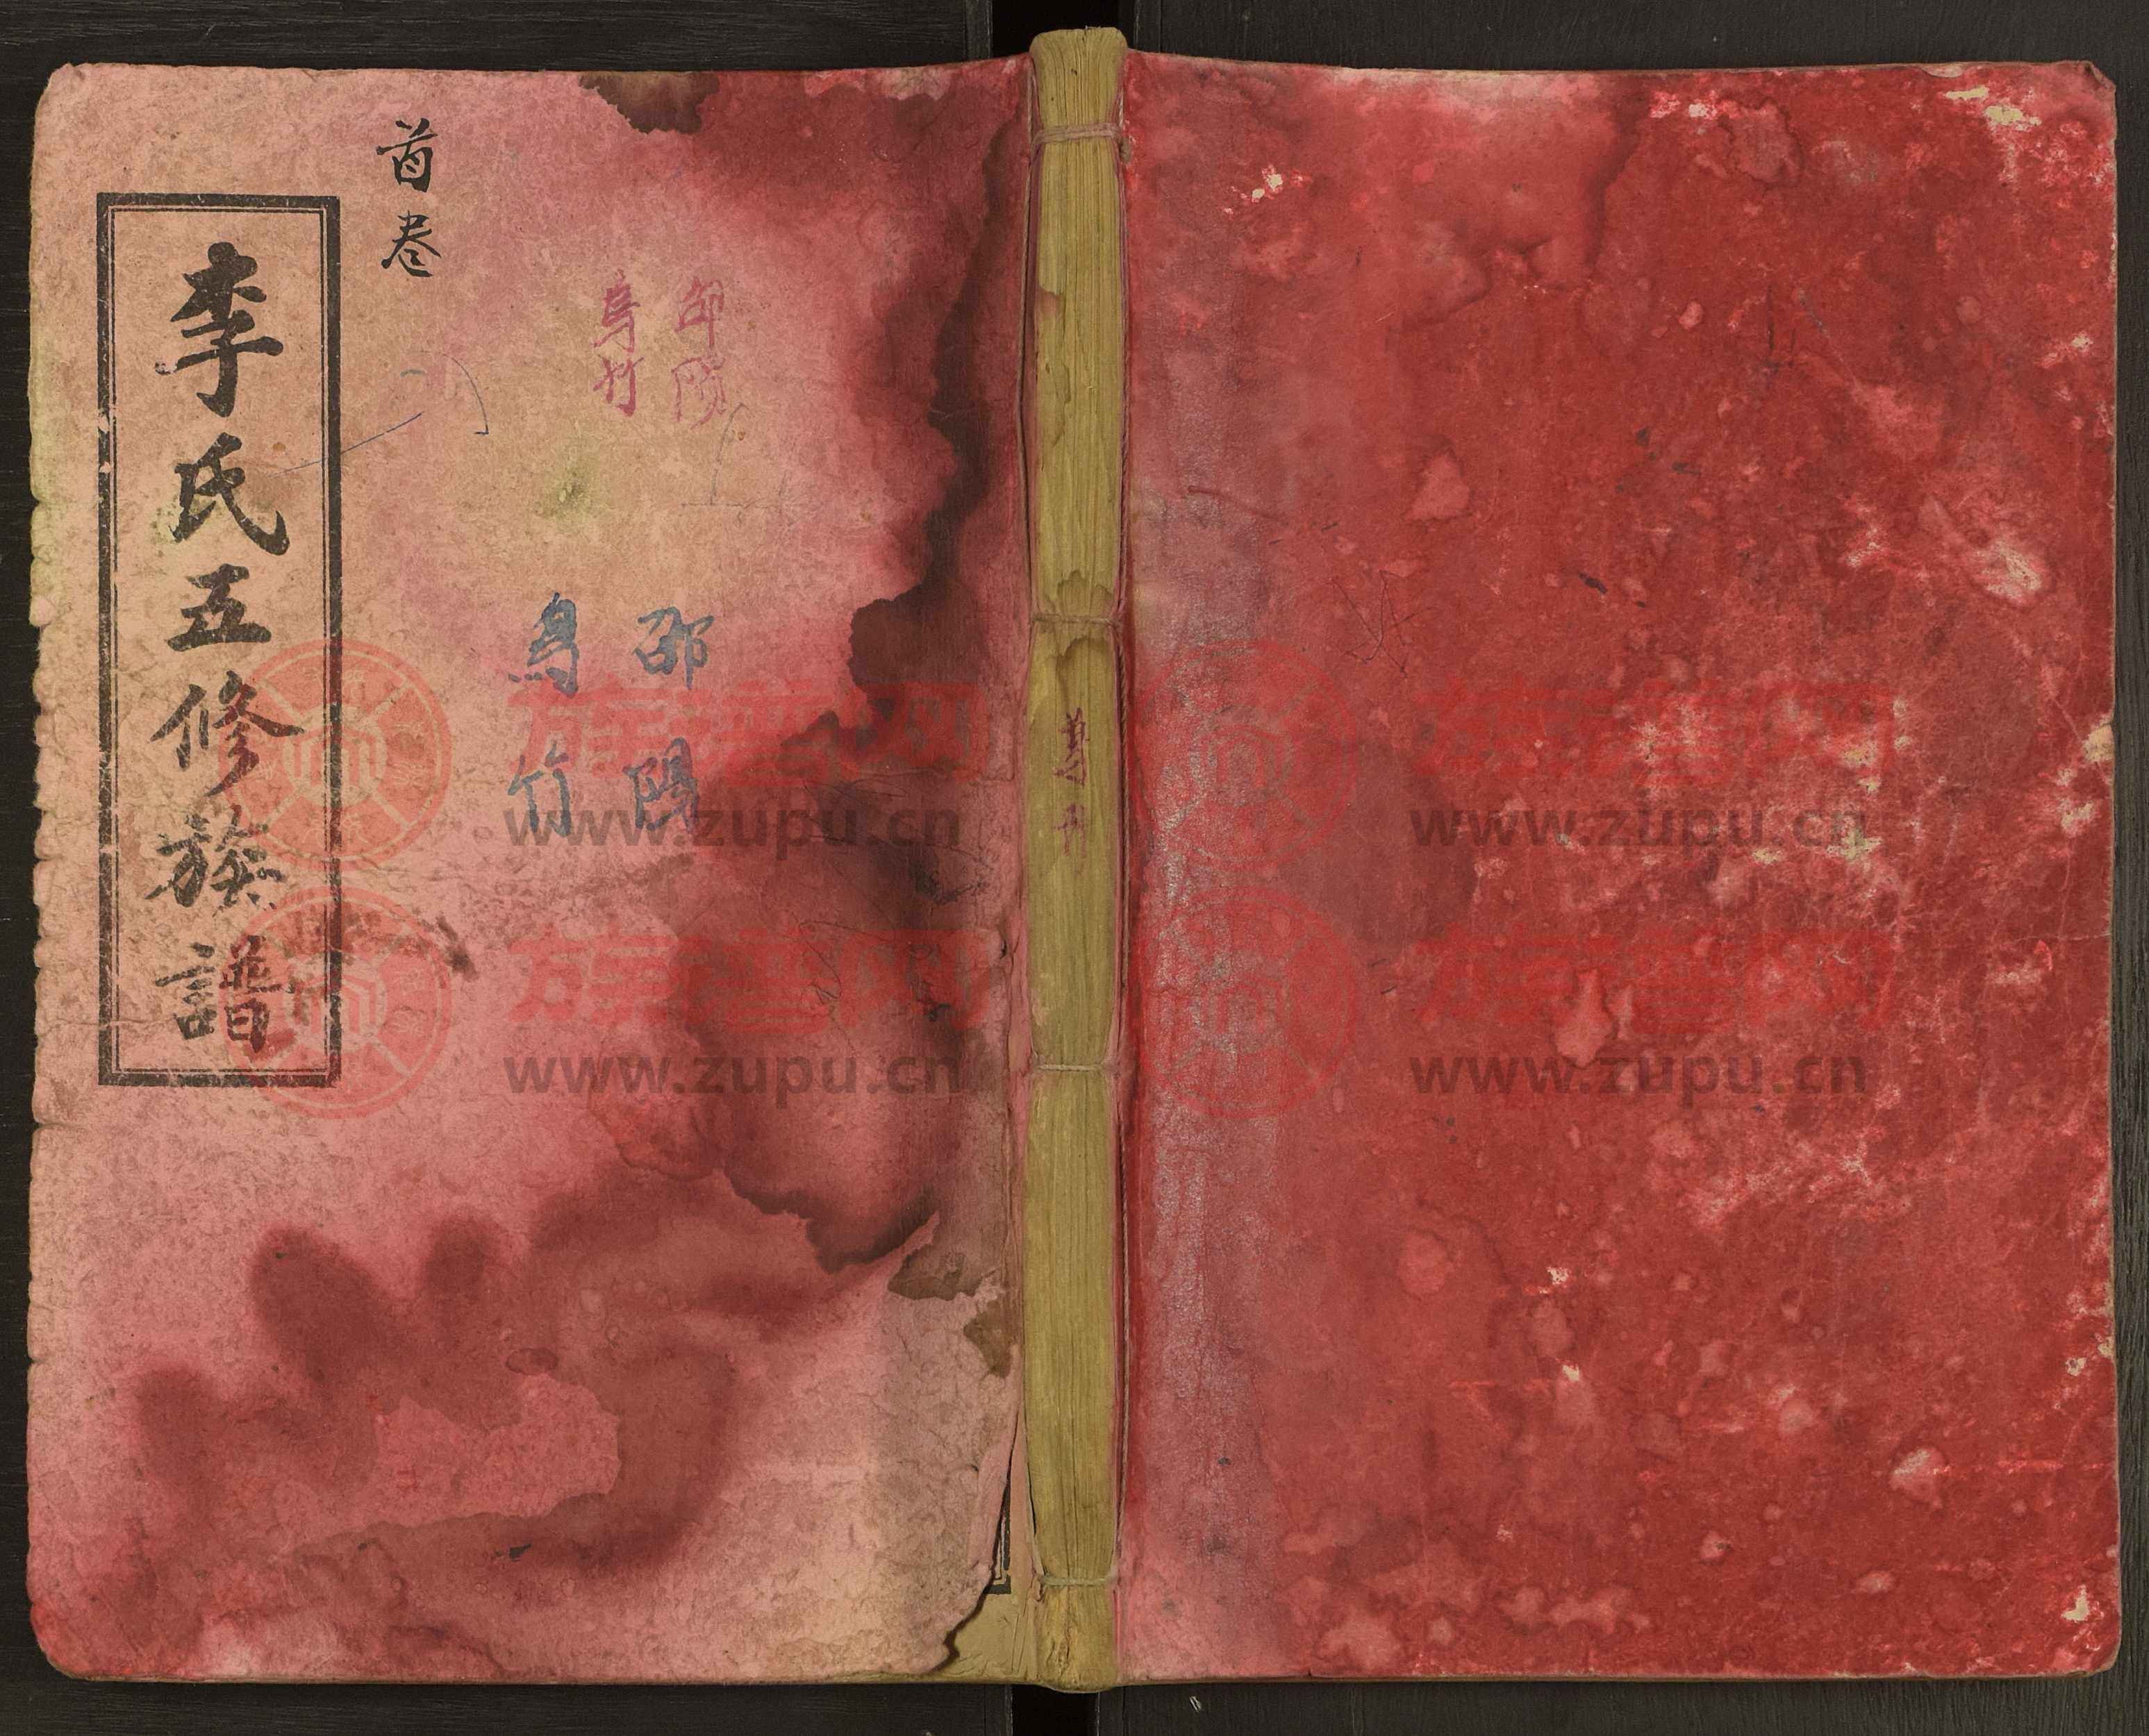 首卷
李氏五修族譜
邵陽
烏竹
邵陽
烏竹
族谱网
www.zupu.cn
族谱网
www.zupu.cn
族谱网
www.zupu.cn
族谱网
www.zupu.cn